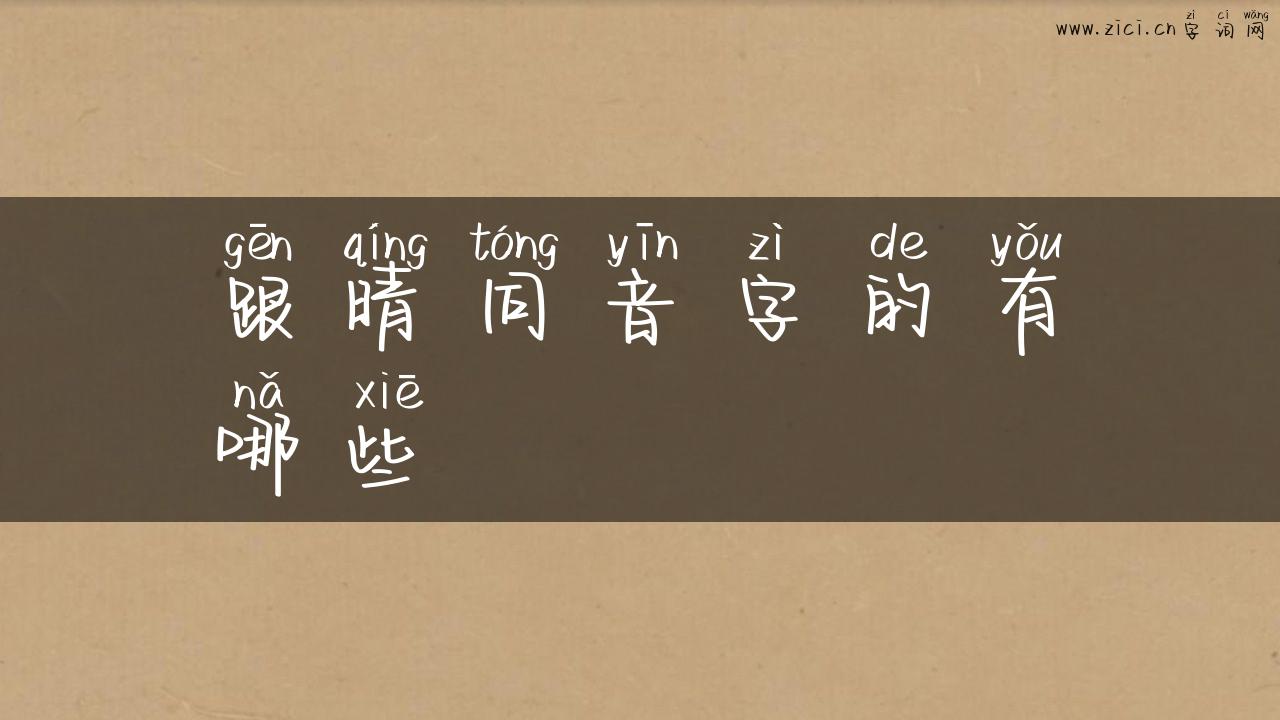 zì cí wǎng
www.zici.cn 字词网
gēn qíng tóng yīn zì de yǒu
跟晴同音字的有
nǎ xiē
哪些